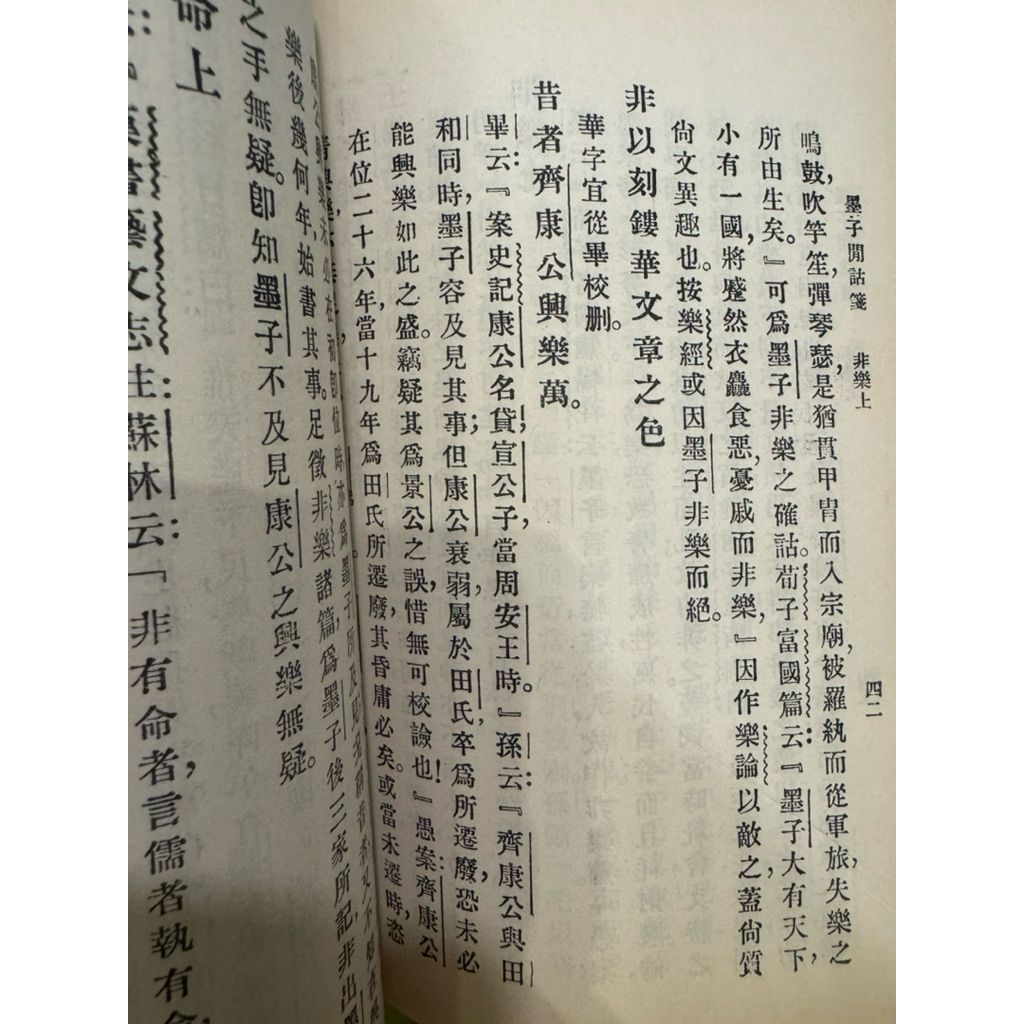 墨子閒詁箋　非樂上　四二
鳴鼓,吹竽笙,彈琴瑟,是猶貫甲冑而入宗廟,被羅紈而從軍旅,失樂之
所由生矣。』可爲墨子非樂之確詁。荀子富國篇云:『墨子大有天下,
小有一國,將蹙然衣麤食惡,憂戚而非樂,』因作樂論以敵之,蓋尙質
尙文異趣也。按樂經或因墨子非樂而絕。
非以刻鏤華文章之色
華字宜從畢校删。
昔者齊康公興樂萬。
畢云:『案史記康公名貸,宣公子,當周安王時。』孫云:『齊康公與田
和同時,墨子容及見其事;但康公衰弱,屬於田氏,卒爲所遷廢,恐未必
能興樂如此之盛。竊疑其爲景公之誤,惜無可校譣也!』愚案:齊康公
在位二十六年,當十九年爲田氏所遷廢,其昏庸必矣。或當未遷時,恣
樂後幾何年,始書其事。足徵非樂諸篇,爲墨子後三家所記,非出墨
之手無疑。卽知墨子不及見康公之興樂無疑。
命上
藝文志注:蘇林云:「非有命者,言儒者執有命